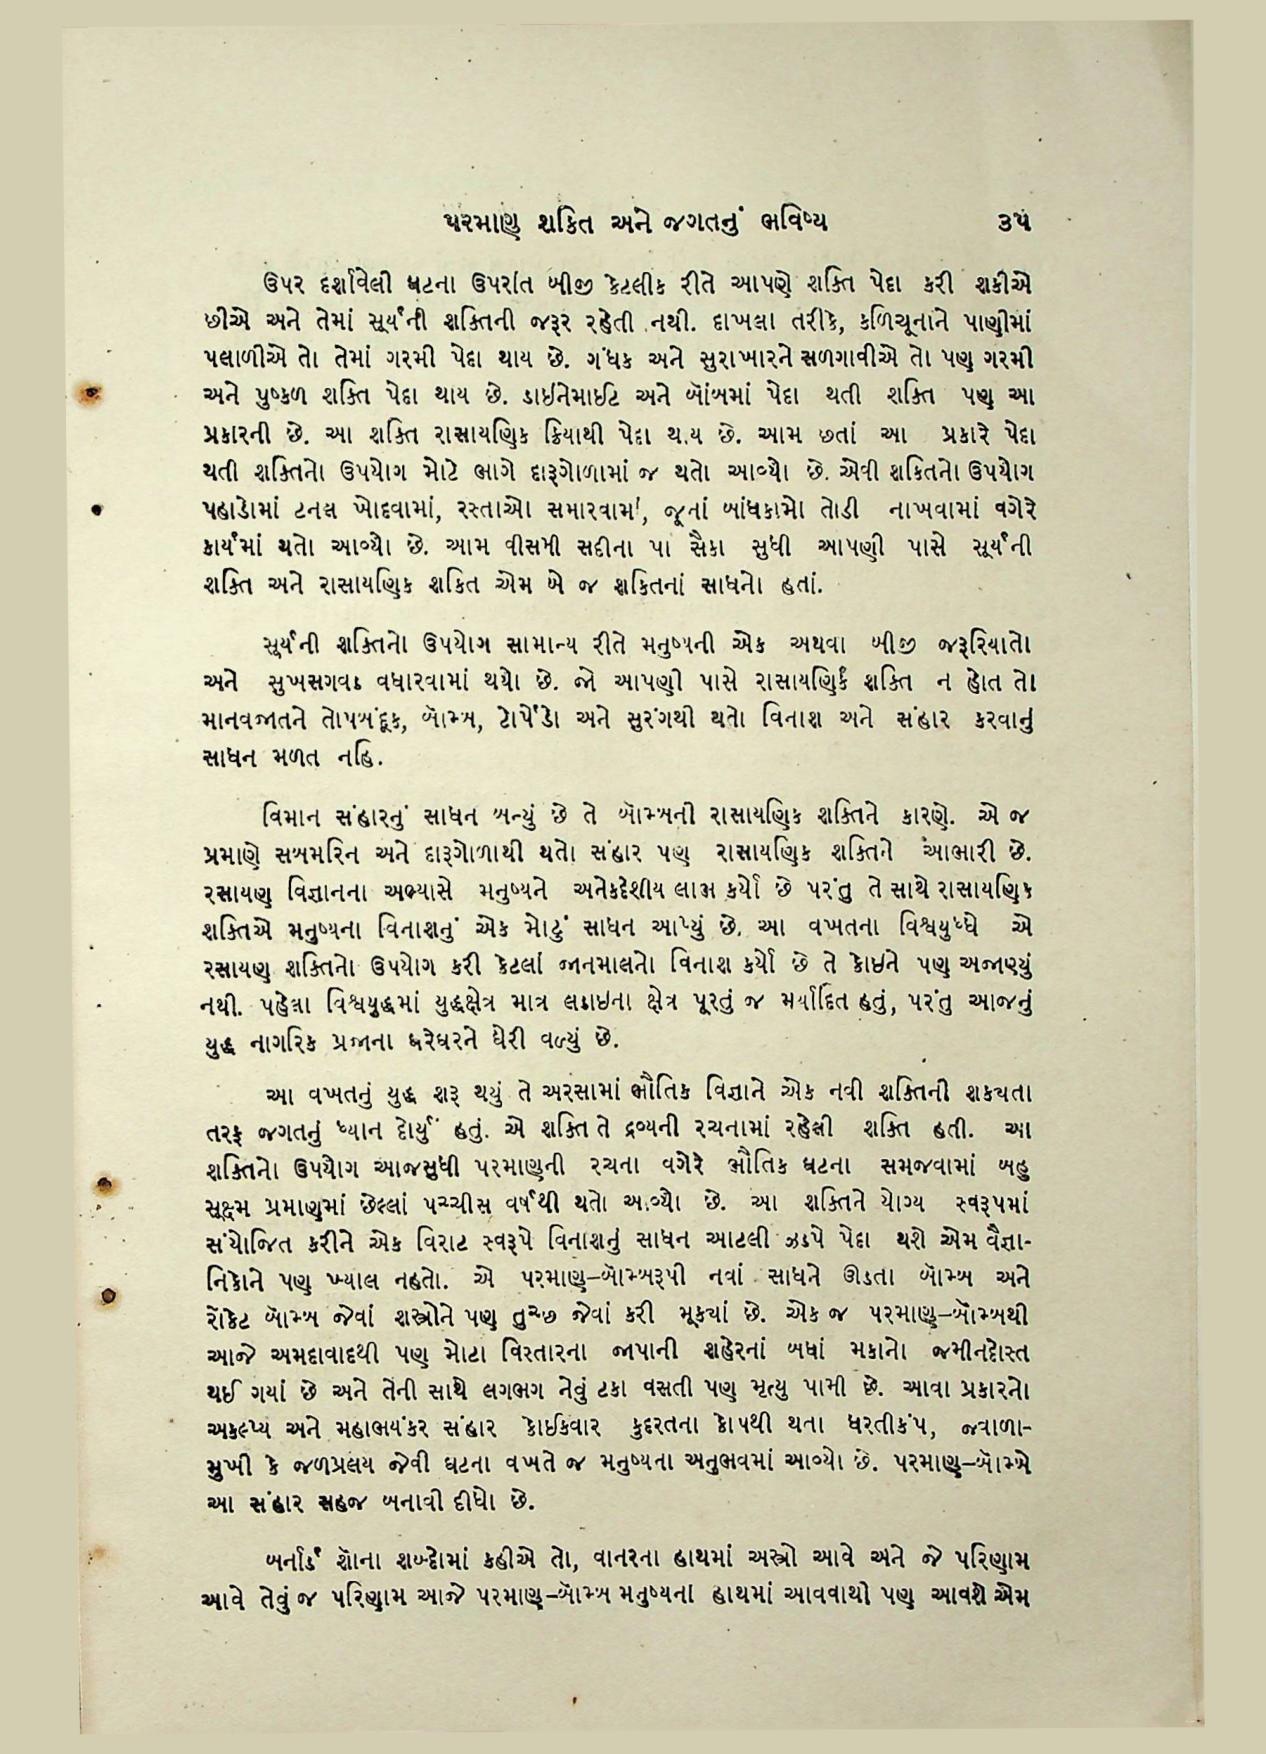 પરમાણુ શકિત અને જગતનું ભવિષ્ય ૩૫
ઉપર દર્શાવેલી ઘટના ઉપરાંત બીજી કેટલીક રીતે આપણે શક્તિ પેદા કરી શકીએ
છીએ અને તેમાં સૂર્યની શક્તિની જરૂર રહેતી નથી. દાખલા તરીકે, કળિચૂનાને પાણીમાં
પલાળીએ તો તેમાં ગરમી પેદા થાય છે. ગંધક અને સુરાખારને સળગાવીએ તો પણ ગરમી
અને પુષ્કળ શક્તિ પેદા થાય છે. ડાઈનેમાઈટ અને બૉંબમાં પેદા થતી શક્તિ પણ આ
પ્રકારની છે. આ શક્તિ રાસાયણિક ક્રિયાથી પેદા થાય છે. આમ છતાં આ પ્રકારે પેદા
થતી શક્તિનો ઉપયોગ મોટે ભાગે દારૂગોળામાં જ થતો આવ્યો છે. એવી શકિતનો ઉપયોગ
પહાડોમાં ટનલ ખોદવામાં, રસ્તાઓ સમારવામાં, જૂનાં બાંધકામો તોડી નાખવામાં વગેરે
કાર્યમાં થતો આવ્યો છે. આમ વીસમી સદીના પા સૈકા સુધી આપણી પાસે સૂર્યની
શક્તિ અને રાસાયણિક શકિત એમ બે જ શકિતનાં સાધનો હતાં.
સૂર્યની શક્તિનો ઉપયોગ સામાન્ય રીતે મનુષ્યની એક અથવા બીજી જરૂરિયાતો
અને સુખસગવડ વધારવામાં થયો છે. જો આપણી પાસે રાસાયણિક શક્તિ ન હોત તો
માનવજાતને તોપબંદૂક, બૉમ્બ, ટોર્પેડો અને સુરંગથી થતો વિનાશ અને સંહાર કરવાનું
સાધન મળત નહિ.
વિમાન સંહારનું સાધન બન્યું છે તે બૉમ્બની રાસાયણિક શક્તિને કારણે. એ જ
પ્રમાણે સબમરિન અને દારૂગોળાથી થતો સંહાર પણ રાસાયણિક શક્તિને આભારી છે.
રસાયણ વિજ્ઞાનના અભ્યાસે મનુષ્યને અનેકદેશીય લાભ કર્યો છે પરંતુ તે સાથે રાસાયણિક
શક્તિએ મનુષ્યના વિનાશનું એક મોટું સાધન આપ્યું છે. આ વખતના વિશ્વયુધ્ધે એ
રસાયણ શક્તિનો ઉપયોગ કરી કેટલાં જાનમાલનો વિનાશ કર્યો છે તે કોઇને પણ અજાણ્યું
નથી. પહેલા વિશ્વયુદ્ધમાં યુદ્ધક્ષેત્ર માત્ર લડાઇના ક્ષેત્ર પૂરતું જ મર્યાદિત હતું, પરંતુ આજનું
યુદ્ધ નાગરિક પ્રજાના ઘરેઘરને ઘેરી વળ્યું છે.
આ વખતનું યુદ્ધ શરૂ થયું તે અરસામાં ભૌતિક વિજ્ઞાને એક નવી શક્તિની શકયતા
તરફ જગતનું ધ્યાન દોર્યું હતું. એ શક્તિ તે દ્રવ્યની રચનામાં રહેલી શક્તિ હતી. આ
શક્તિનો ઉપયોગ આજસુધી પરમાણુની રચના વગેરે ભૌતિક ઘટના સમજવામાં બહુ
સૂક્ષ્મ પ્રમાણમાં છેલ્લાં પચ્ચીસ વર્ષથી થતો આવ્યો છે. આ શક્તિને યોગ્ય સ્વરૂપમાં
સંયોજિત કરીને એક વિરાટ સ્વરૂપે વિનાશનું સાધન આટલી ઝડપે પેદા થશે એમ વૈજ્ઞા-
નિકોને પણ ખ્યાલ નહતો. એ પરમાણુ-બૉમ્બરૂપી નવાં સાધને ઊડતા બૉમ્બ અને
રૉકેટ બૉમ્બ જેવાં શસ્ત્રોને પણ તુચ્છ જેવાં કરી મૂકયાં છે. એક જ પરમાણુ-બૉમ્બથી
આજે અમદાવાદથી પણ મોટા વિસ્તારના જાપાની શહેરનાં બધાં મકાનો જમીનદોસ્ત
થઈ ગયાં છે અને તેની સાથે લગભગ નેવું ટકા વસતી પણ મૃત્યુ પામી છે. આવા પ્રકારનો
અકલ્પ્ય અને મહાભયંકર સંહાર કોઈકવાર કુદરતના કોપથી થતા ધરતીકંપ, જ્વાળા-
મુખી કે જળપ્રલય જેવી ઘટના વખતે જ મનુષ્યના અનુભવમાં આવ્યો છે. પરમાણુ-બૉમ્બે
આ સંહાર સહજ બનાવી દીધો છે.
બર્નાર્ડ શૉના શબ્દોમાં કહીએ તો, વાનરના હાથમાં અસ્ત્રો આવે અને જે પરિણામ
આવે તેવું જ પરિણામ આજે પરમાણુ-બૉમ્બ મનુષ્યના હાથમાં આવવાથી પણ આવશે એમ